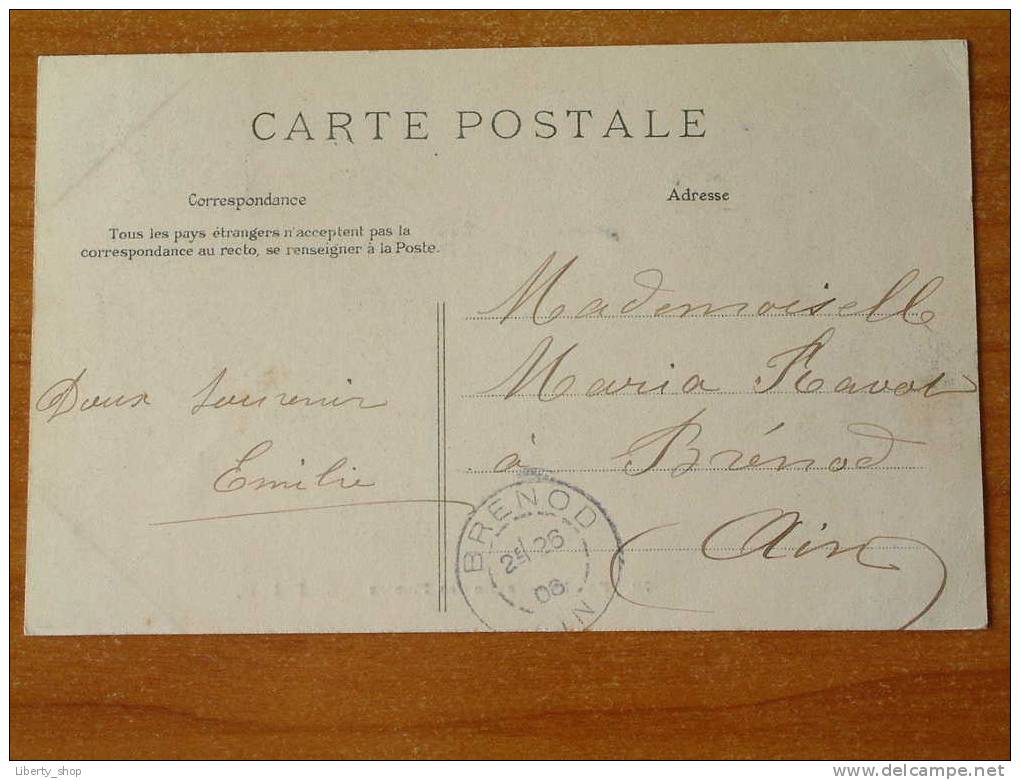 CARTE POSTALE
Correspondance
Tous les pays étrangers n'acceptent pas la
correspondance au recto, se renseigner à la Poste.
Doux Souvenir
Emilie
Adresse
Mademoiselle
Maria
à Brénod
(Ain)
BRENOD
26
06
Liberty_shop
www.delcampe.net